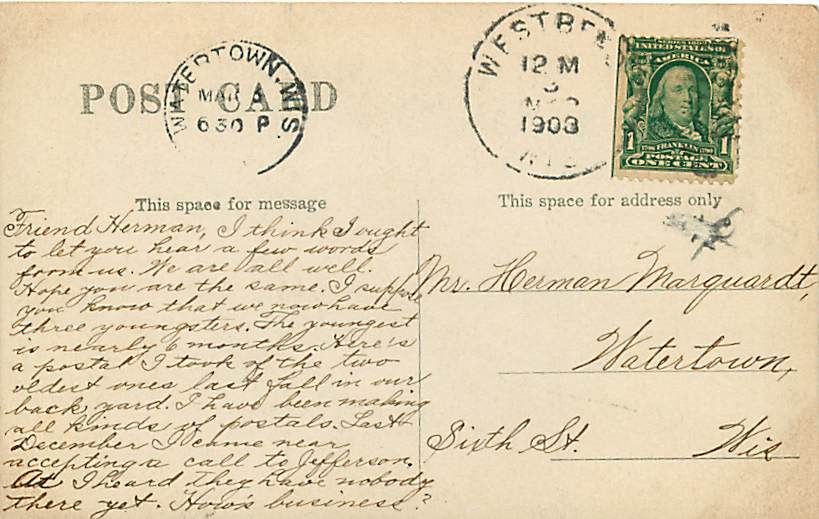 POST CARD
WATERTOWN, WIS.
MAR 3
630 P
WEST BEN
12 M
3
1908
WIS
SERIES 1902
UNITED STATES OF
AMERICA
1 FRANKLIN 1
POSTAGE
ONE CENT
This space for message
This space for address only
Friend Herman, I think I ought
to let you hear a few words
from us. We are all well.
Hope you are the same. I suppose
you know that we now have
three youngsters. The youngest
is nearly 6 months. Here's
a postal I took of the two
oldest ones last fall in our
back yard. I have been making
all kinds of postals. Last
December I came near
accepting a call to Jefferson.
I heard they have nobody
there yet. How's business?
Mr. Herman Marquardt,
Watertown,
Sixth St. Wis